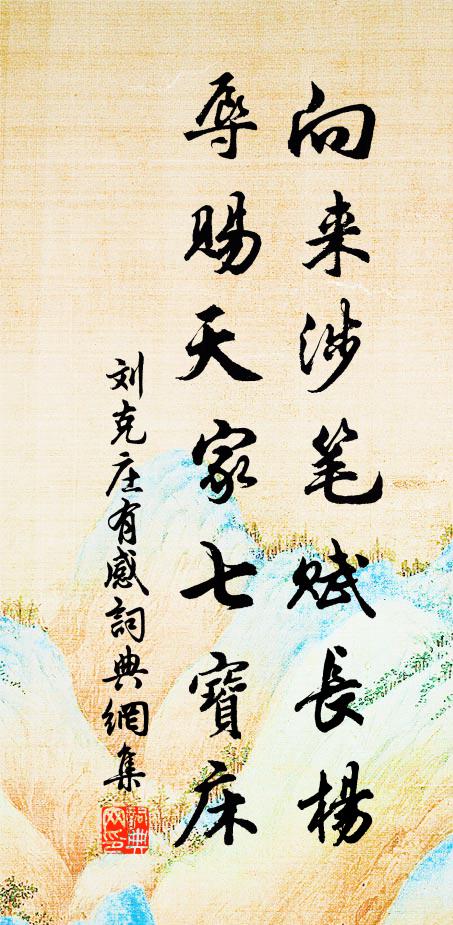 向来涉笔赋長楊
辱賜天家七寶床
刘克庄有感詞典網集
詞典